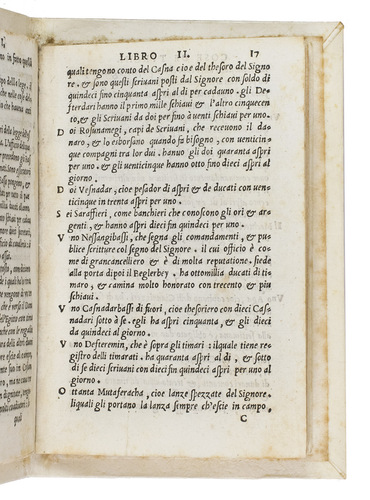 LIBRO II. 17
quali tengono conto del Casna cioe del thesoro del Signo
re. & sono questi scriuani posti dal Signore con soldo di
quindeci fino cinquanta aspri al di per cadauno. gli De
fterdari hanno il primo mille schiaui & l'altro cinquecen
to, & gli Scriuani da doi per fino à uenti schiaui per uno.
D oi Rosunamegi, capi de Scriuani, che receuono il da-
naro, & lo esborsano quando fa bisogno, con uenticin-
que compagni tra lor dui. hanno gli doi quaranta aspri
per uno, & gli uenticinque hanno otto fino dieci aspri al
giorno.
D oi Vesnadar, cioe pesador di aspri & de ducati con uen-
ticinque in trenta aspri per uno.
S ei Saraffieri, come banchieri che conoscono gli ori & ar-
genti, & hanno aspri dieci fin quindeci per uno.
V no Nessangibassi, che segna gli comandamenti, & pu-
blice scritture col segno del Signore. il cui officio è co-
me di grancancelliero & è di molta reputatione. siede
alla porta dipoi il Beglerbey. ha ottomillia ducati di ti-
maro, & camina molto honorato con trecento & piu
schiaui.
V no Casnadarbassi di fuori, cioe thesoriero con dieci Cas-
nadari sotto à se. egli ha aspri cinquanta, & gli dieci
da quindeci al giorno.
V no Defteremin, che è sopra gli timari: il quale tiene re-
gistro delli timarati. ha quaranta aspri al di, & sotto
di se dieci scriuani con dieci fin quindeci aspri per uno al
giorno.
O ttanta Mutaferacha, cioe lanze spezzate del Signore.
liquali gli portano la lanza sempre ch'esce in campo,
C